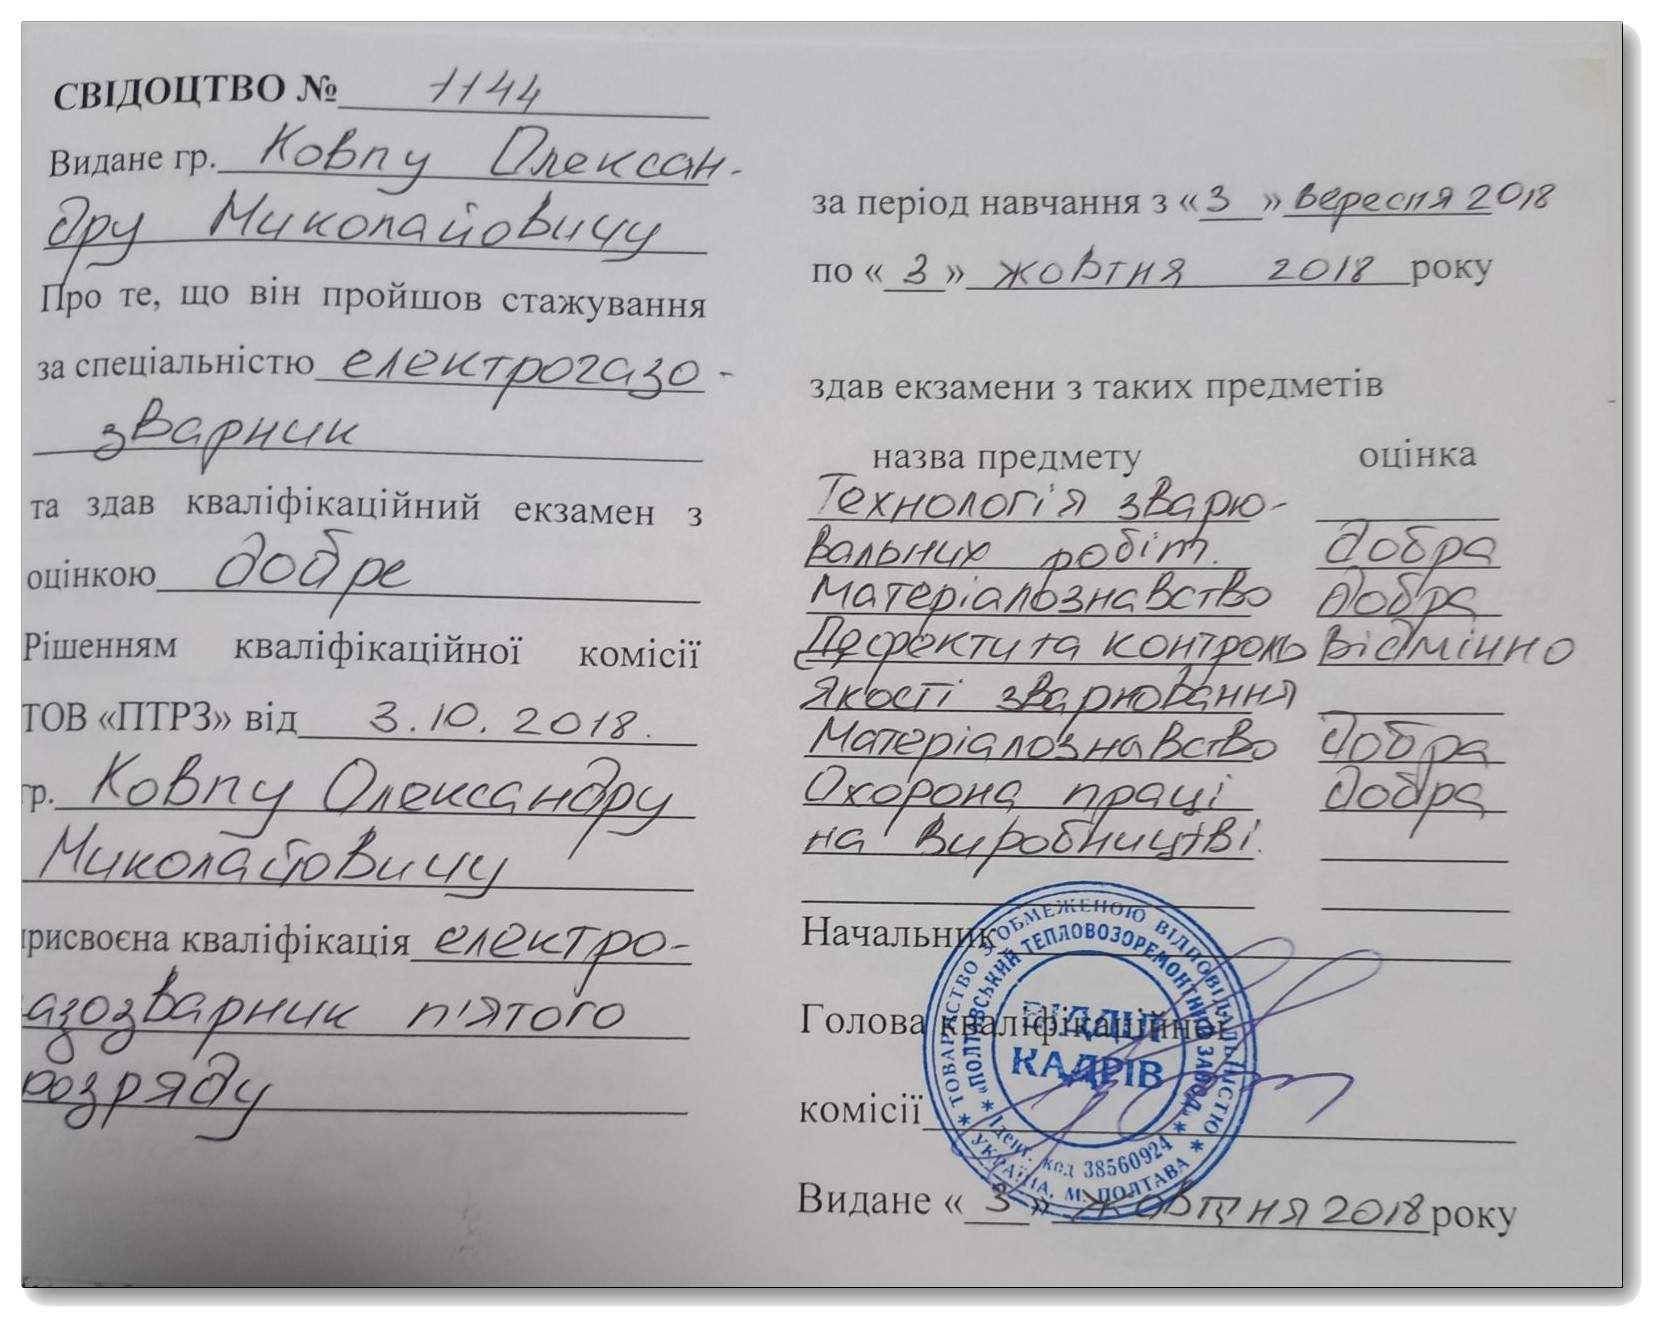 СВІДОЦТВО № 1144
Видане гр. Ковпу Олексан-
дру Миколайовичу
Про те, що він пройшов стажування
за спеціальністю електрогазо-
зварник
та здав кваліфікаційний екзамен з
оцінкою добре
Рішенням кваліфікаційної комісії
ТОВ «ПТРЗ» від 3.10.2018.
гр. Ковпу Олександру
Миколайовичу
присвоєна кваліфікація електро-
газозварник п'ятого
розряду
за період навчання з «3» вересня 2018
по «3» жовтня 2018 року
здав екзамени з таких предметів
назва предмету оцінка
Технологія зварю-
вальних робіт. добра
Матеріалознавство добра
Дефекти та контроль відмінно
якості зварювання
Матеріалознавство добра
Охорона праці добра
на виробництві.
Начальник
Голова кваліфікаційної
комісії
Видане «3» жовтня 2018 року
ТОВАРИСТВО З ОБМЕЖЕНОЮ ВІДПОВІДАЛЬНІСТЮ
«ПОЛТАВСЬКИЙ ТЕПЛОВОЗОРЕМОНТНИЙ ЗАВОД»
ВІДДІЛ
КАДРІВ
Ідент. код 38560924
УКРАЇНА, М. ПОЛТАВА